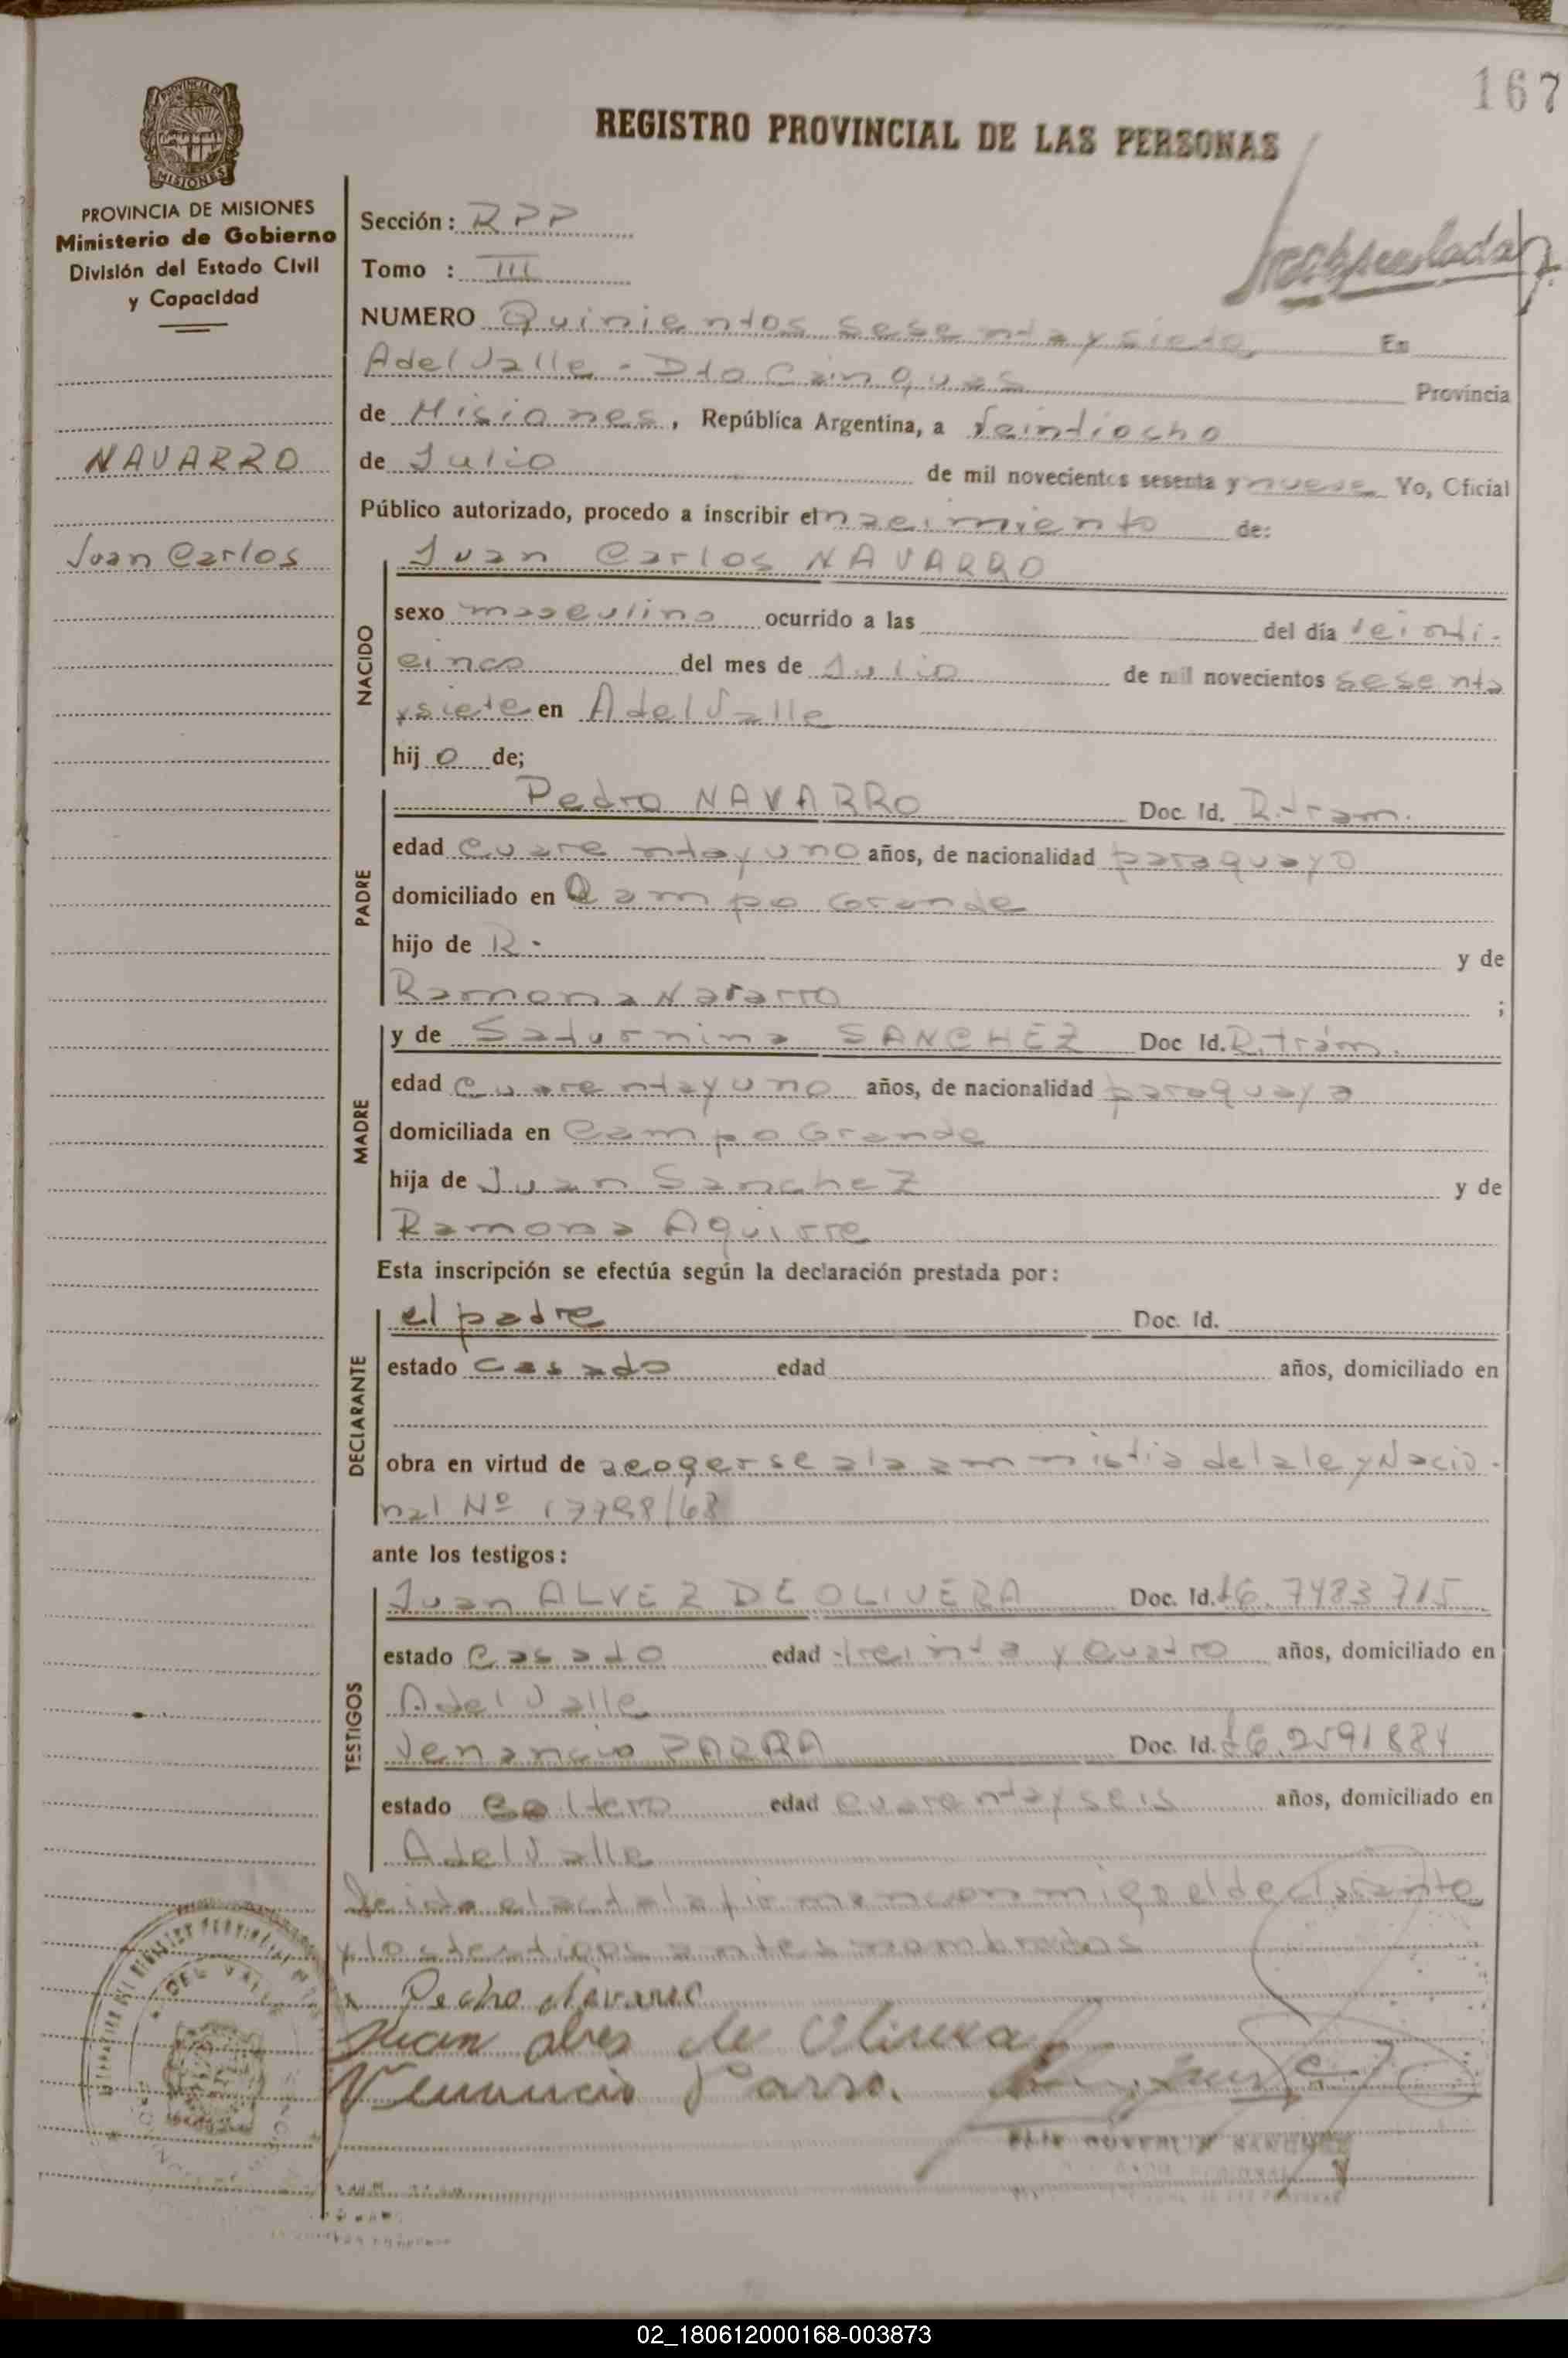 167
REGISTRO PROVINCIAL DE LAS PERSONAS
PROVINCIA DE MISIONES
Ministerio de Gobierno
División del Estado Civil
y Capacidad
NAVARRO
Juan Carlos
Sección: RPP
Tomo : III
NUMERO Quinientos sesenta y siete En
A del Valle - Dto Cainguas Provincia
de Misiones, República Argentina, a Veintiocho
de Julio de mil novecientos sesenta y nueve Yo, Oficial
Público autorizado, procedo a inscribir el nacimiento de:
NACIDO
Juan Carlos NAVARRO
sexo masculino ocurrido a las del día veinti-
cinco del mes de Julio de mil novecientos sesenta
y siete en A del Valle
hijo de;
PADRE
Pedro NAVARRO Doc. Id. R. tram.
edad cuarenta y uno años, de nacionalidad paraguayo
domiciliado en Campo Grande
hijo de R. y de
Ramona Navarro ;
MADRE
y de Saturnina SANCHEZ Doc Id. R. trám.
edad cuarenta y uno años, de nacionalidad paraguaya
domiciliada en Campo Grande
hija de Juan Sanchez y de
Ramona Aguirre
Esta inscripción se efectúa según la declaración prestada por:
DECLARANTE
el padre Doc. Id.
estado casado edad años, domiciliado en
obra en virtud de acogerse a la amnistia de la ley Nacio-
nal Nº
ante los testigos:
TESTIGOS
Juan ALVEZ DE OLIVERA Doc. Id. 7483715
estado casado edad treinta y cuatro años, domiciliado en
A del Valle
Venancio PARRA Doc. Id. 2591884
estado soltero edad cuarenta y seis años, domiciliado en
A del Valle
Leida el acta la firman conmigo el declarante
y los testigos antes nombrados
Pedro Navarro
Juan alves de Olivera
Venancio Parra.
02_180612000168-003873